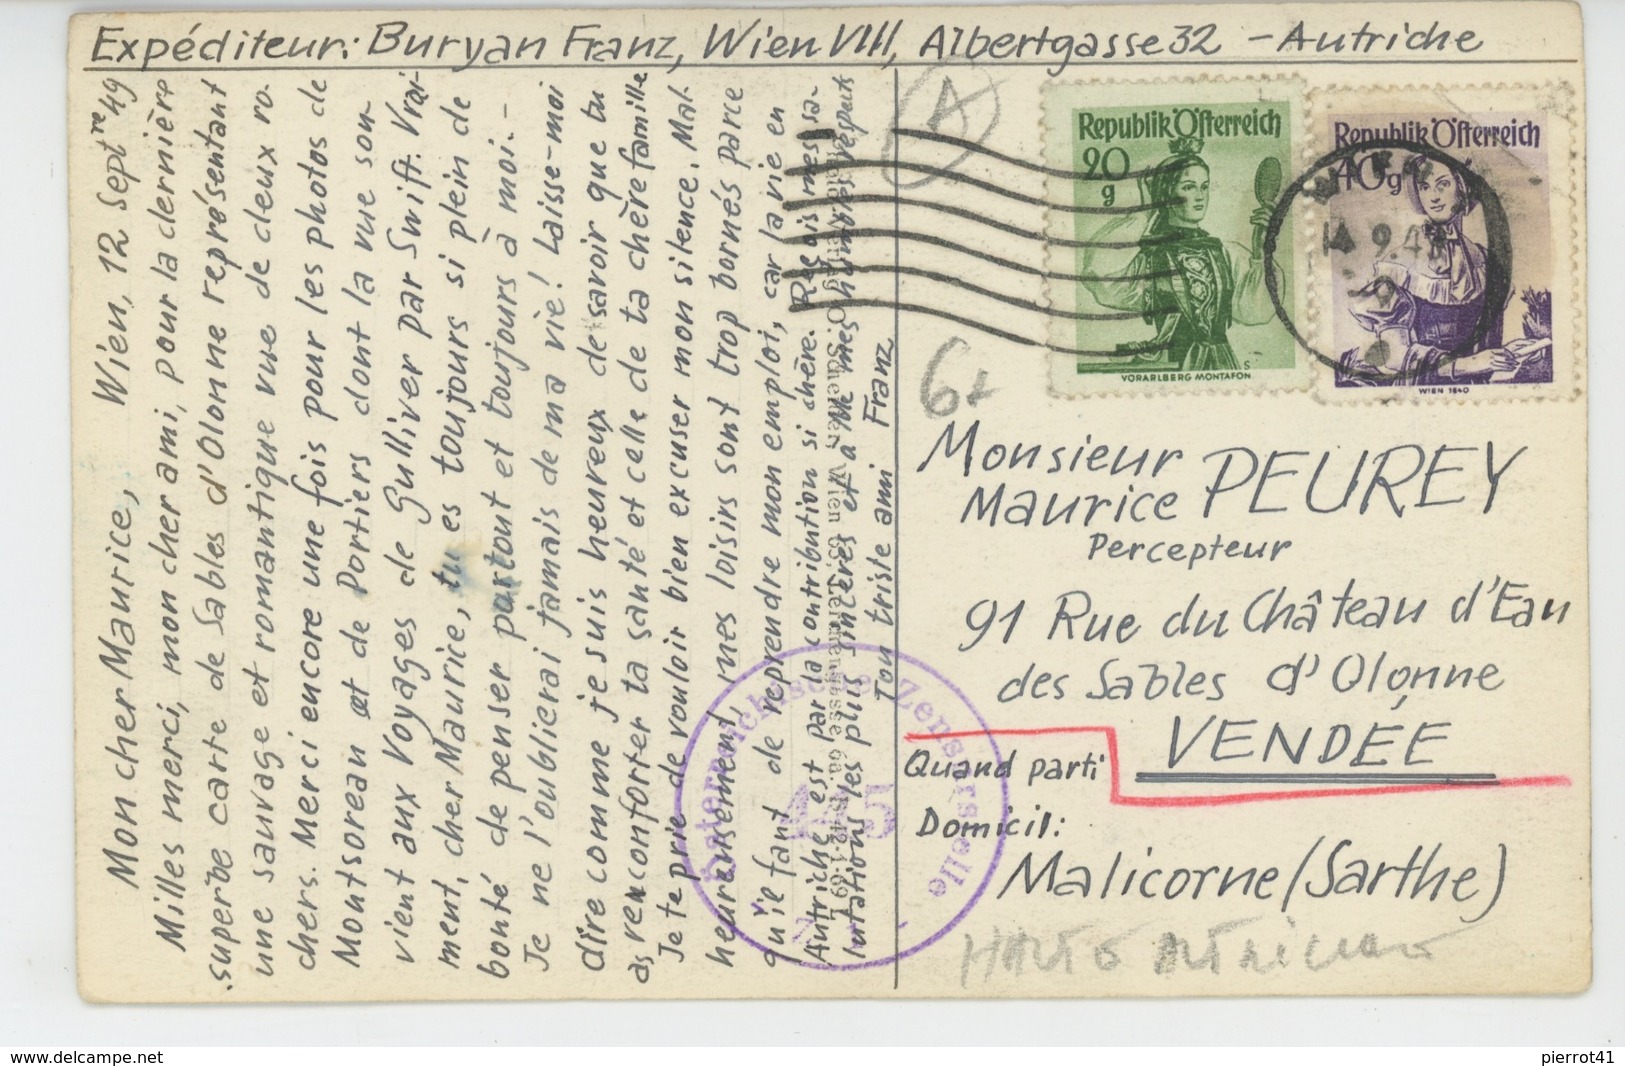 Expéditeur: Buryan Franz, Wien VIII, Albertgasse 32 - Autriche
Mon cher Maurice, Wien, 12 Septre 49
Milles merci, mon cher ami, pour la dernière
superbe carte de Sables d'Olonne représentant
une sauvage et romantique vue de deux ro-
chers. Merci encore une fois pour les photos de
Montsoreau et de Portiers dont la vue son-
vient aux Voyages de Gulliver par Swift. Vrai-
ment, cher Maurice, tu es toujours si plein de
bonté de penser partout et toujours à moi.-
Je ne l'oublierai jamais de ma vie! Laisse-moi
dire comme je suis heureux de savoir que tu
as renconforter ta santé et celle de ta chère famille
Je te prie de vouloir bien excuser mon silence. Mal-
heureusement, mes loisirs sont trop bornés parce
qu'il faut de reprendre mon emploi, car la vie en
Autriche est par la contribution si chère. Reçois mes sa-
lutations les plus sincères et à Me mes humbles respects
Ton triste ami Franz
Österreichische Zensurstelle
45
A
6+
Republik Österreich
20
g
VORARLBERG MONTAFON
Republik Österreich
40g
WIEN 1840
14. 9. 49
Monsieur
Maurice PEUREY
Percepteur
91 Rue du Château d'Eau
des Sables d'Olonne
VENDÉE
Quand parti
Domicil:
Malicorne (Sarthe)
delcampe.net
pierrot41